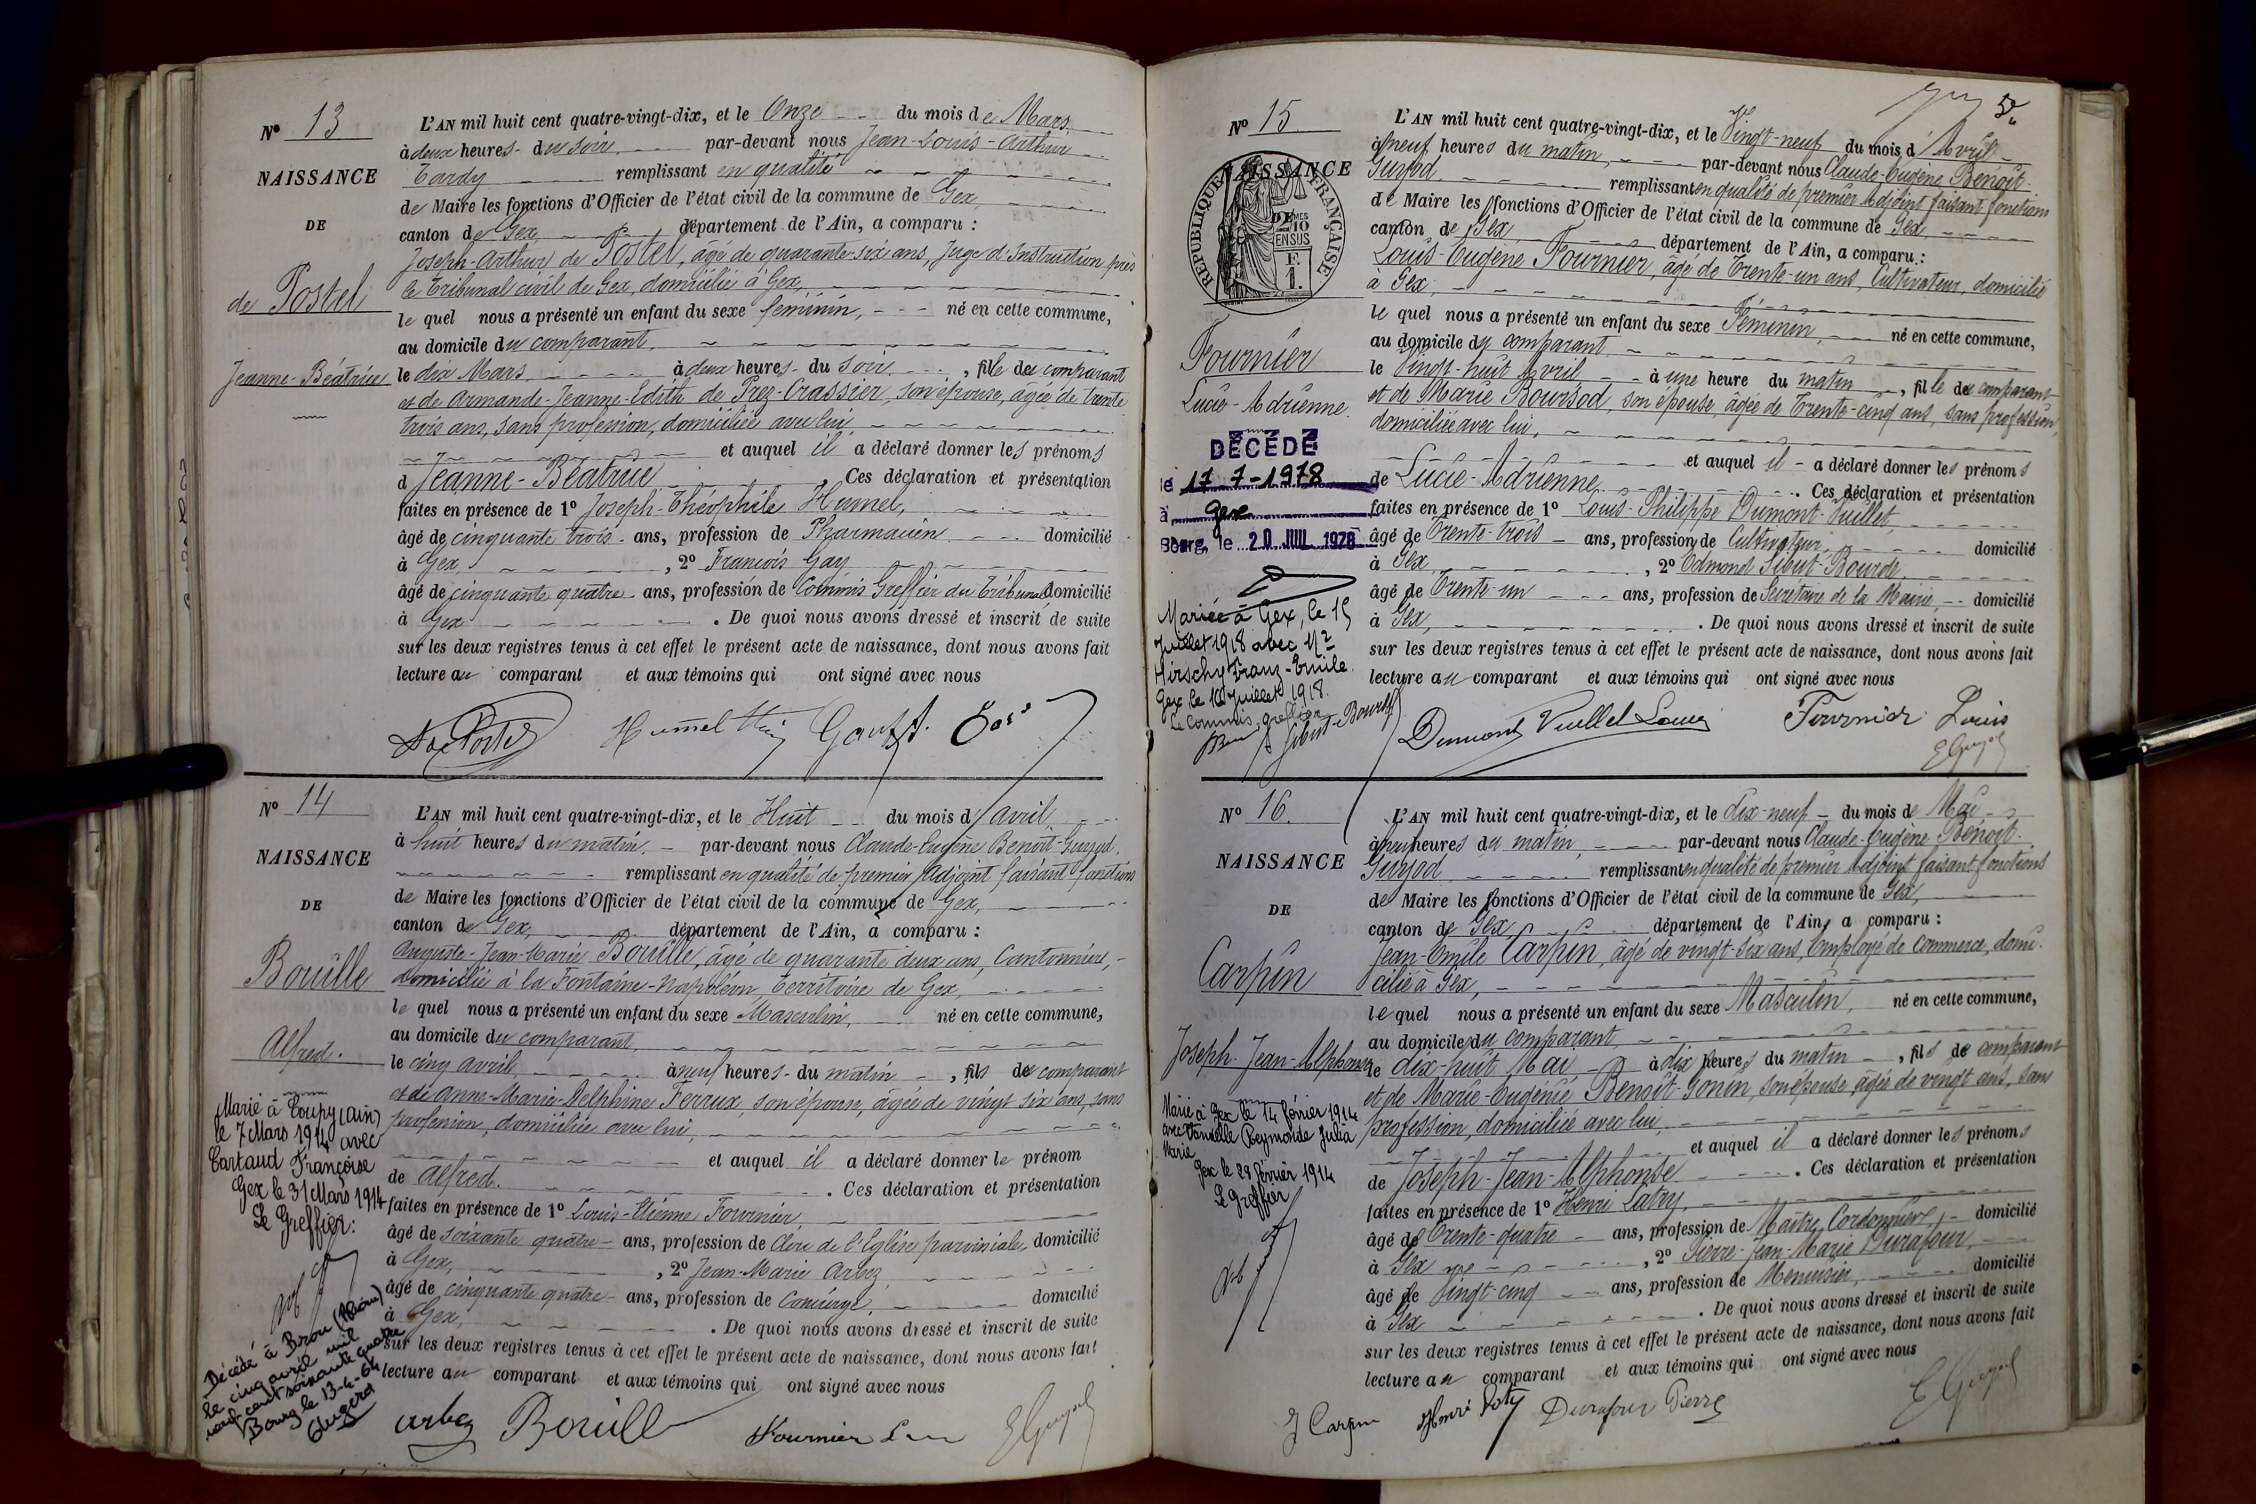 Nº 13
NAISSANCE
DE
de Postel
Jeanne-Béatrice
L'AN mil huit cent quatre-vingt-dix, et le Onze du mois de Mars
à deux heures du soir par-devant nous Jean-Louis-Arthur
Tardy remplissant en qualité
de Maire les fonctions d'Officier de l'état civil de la commune de Gex,
canton de Gex, département de l'Ain, a comparu :
Joseph-Arthur de Postel, âgé de quarante-six ans, Juge d'Instruction près
le Tribunal civil de Gex, domicilié à Gex,
le quel nous a présenté un enfant du sexe féminin, né en cette commune,
au domicile du comparant,
le dix Mars à deux heures du soir, fille du comparant
et de Armande-Jeanne-Edith de Prez-Crassier, son épouse, âgée de trente
trois ans, sans profession, domiciliée avec lui,
et auquel il a déclaré donner les prénoms
d Jeanne-Béatrice. Ces déclaration et présentation
faites en présence de 1º Joseph-Théophile Humel,
âgé de cinquante trois ans, profession de Pharmacien domicilié
à Gex, 2º François Gay
âgé de cinquante quatre ans, profession de Commis Greffier du Tribunal domicilié
à Gex. De quoi nous avons dressé et inscrit de suite
sur les deux registres tenus à cet effet le présent acte de naissance, dont nous avons fait
lecture au comparant et aux témoins qui ont signé avec nous
Nº 14
NAISSANCE
DE
Bouille
Alfred.
Marié à Coupy (Ain)
le 7 Mars 1914 avec
Cartaud Françoise
Gex le 31 Mars 1914
Le Greffier:
Décédé à Bron (Rhône)
le cinq avril mil
neuf cent soixante quatre
Bourg le 13-4-64
L'AN mil huit cent quatre-vingt-dix, et le Huit du mois d'avril
à huit heures du matin, par-devant nous Claude-Eugène Benoît-Guyod,
remplissant en qualité de premier Adjoint faisant fonctions
de Maire les fonctions d'Officier de l'état civil de la commune de Gex,
canton de Gex, département de l'Ain, a comparu :
Auguste-Jean-Marie Bouille, âgé de quarante deux ans, Cantonnier,
domicilié à la Fontaine-Napoléon, territoire de Gex,
le quel nous a présenté un enfant du sexe Masculin, né en cette commune,
au domicile du comparant,
le cinq avril, à neuf heures du matin, fils du comparant
et de Anne-Marie-Delphine Ferrux, son épouse, âgée de vingt six ans, sans
profession, domiciliée avec lui,
et auquel il a déclaré donner le prénom
de Alfred. Ces déclaration et présentation
faites en présence de 1º Louis-Etienne Fournier,
âgé de soixante quatre ans, profession de Clerc de l'Eglise paroissiale, domicilié
à Gex, 2º Jean-Marie Arbez,
âgé de cinquante quatre ans, profession de Concierge, domicilié
à Gex, De quoi nous avons dressé et inscrit de suite
sur les deux registres tenus à cet effet le présent acte de naissance, dont nous avons fait
lecture au comparant et aux témoins qui ont signé avec nous
Arbez Bouille Fournier
Nº 15
NAISSANCE
DE
RÉPUBLIQUE FRANÇAISE
2/10 EN SUS
F. 1.
Fournier
Lucie-Adrienne.
DÉCÉDÉ
le 17-7-1978
à Gex
Bourg, le 20 JUIL 1978
Mariée à Gex, le 15
Juillet 1918 avec Mr
Hirschy Franz-Emile.
Gex le 16 Juillet 1918.
Le Commis greffier
Sibut-Bourde
L'AN mil huit cent quatre-vingt-dix, et le Vingt-neuf du mois d'Avril
à neuf heures du matin, par-devant nous Claude-Eugène Benoît-
Guyod remplissant en qualité de premier Adjoint faisant fonctions
de Maire les fonctions d'Officier de l'état civil de la commune de Gex,
canton de Gex, département de l'Ain, a comparu :
Louis-Eugène Fournier, âgé de Trente-un ans, Cultivateur, domicilié
à Gex,
le quel nous a présenté un enfant du sexe Féminin, né en cette commune,
au domicile du comparant
le Vingt-huit Avril à une heure du matin, fille du comparant
et de Marie Boursod, son épouse, âgée de Trente-cinq ans, sans profession,
domiciliée avec lui,
et auquel il a déclaré donner les prénoms
de Lucie-Adrienne. Ces déclaration et présentation
faites en présence de 1º Louis-Philippe Dumont-Vuillet,
âgé de Trente-trois ans, profession de Cultivateur, domicilié
à Gex, 2º Edmond Sibut-Bourde,
âgé de Trente-un ans, profession de Secrétaire de la Mairie, domicilié
à Gex, De quoi nous avons dressé et inscrit de suite
sur les deux registres tenus à cet effet le présent acte de naissance, dont nous avons fait
lecture au comparant et aux témoins qui ont signé avec nous
Dumont Vuillet Louis Fournier Louis
Nº 16.
NAISSANCE
DE
Carpin
Joseph-Jean-Alphonse
Marié à Gex le 14 février 1914
avec Vandelle Reymonde Julia
Marie
Gex le 21 février 1914
Le Greffier
L'AN mil huit cent quatre-vingt-dix, et le dix-neuf du mois de Mai
à neuf heures du matin, par-devant nous Claude-Eugène Benoît-
Guyod remplissant en qualité de premier Adjoint faisant fonctions
de Maire les fonctions d'Officier de l'état civil de la commune de Gex,
canton de Gex, département de l'Ain, a comparu :
Jean-Emile Carpin, âgé de vingt-six ans, Employé de commerce, domi-
cilié à Gex,
le quel nous a présenté un enfant du sexe Masculin, né en cette commune,
au domicile du comparant,
le dix-huit Mai à dix heures du matin, fils du comparant
et de Marie-Eugénie Benoît-Gonin, son épouse, âgée de vingt ans, sans
profession, domiciliée avec lui,
et auquel il a déclaré donner les prénoms
de Joseph-Jean-Alphonse. Ces déclaration et présentation
faites en présence de 1º Henri Laty,
âgé de Trente-quatre ans, profession de Maître Cordonnier, domicilié
à Gex, 2º Pierre-Jean-Marie Durafour,
âgé de Vingt-cinq ans, profession de Menuisier, domicilié
à Gex. De quoi nous avons dressé et inscrit de suite
sur les deux registres tenus à cet effet le présent acte de naissance, dont nous avons fait
lecture au comparant et aux témoins qui ont signé avec nous
J Carpin Henri Laty Durafour Pierre